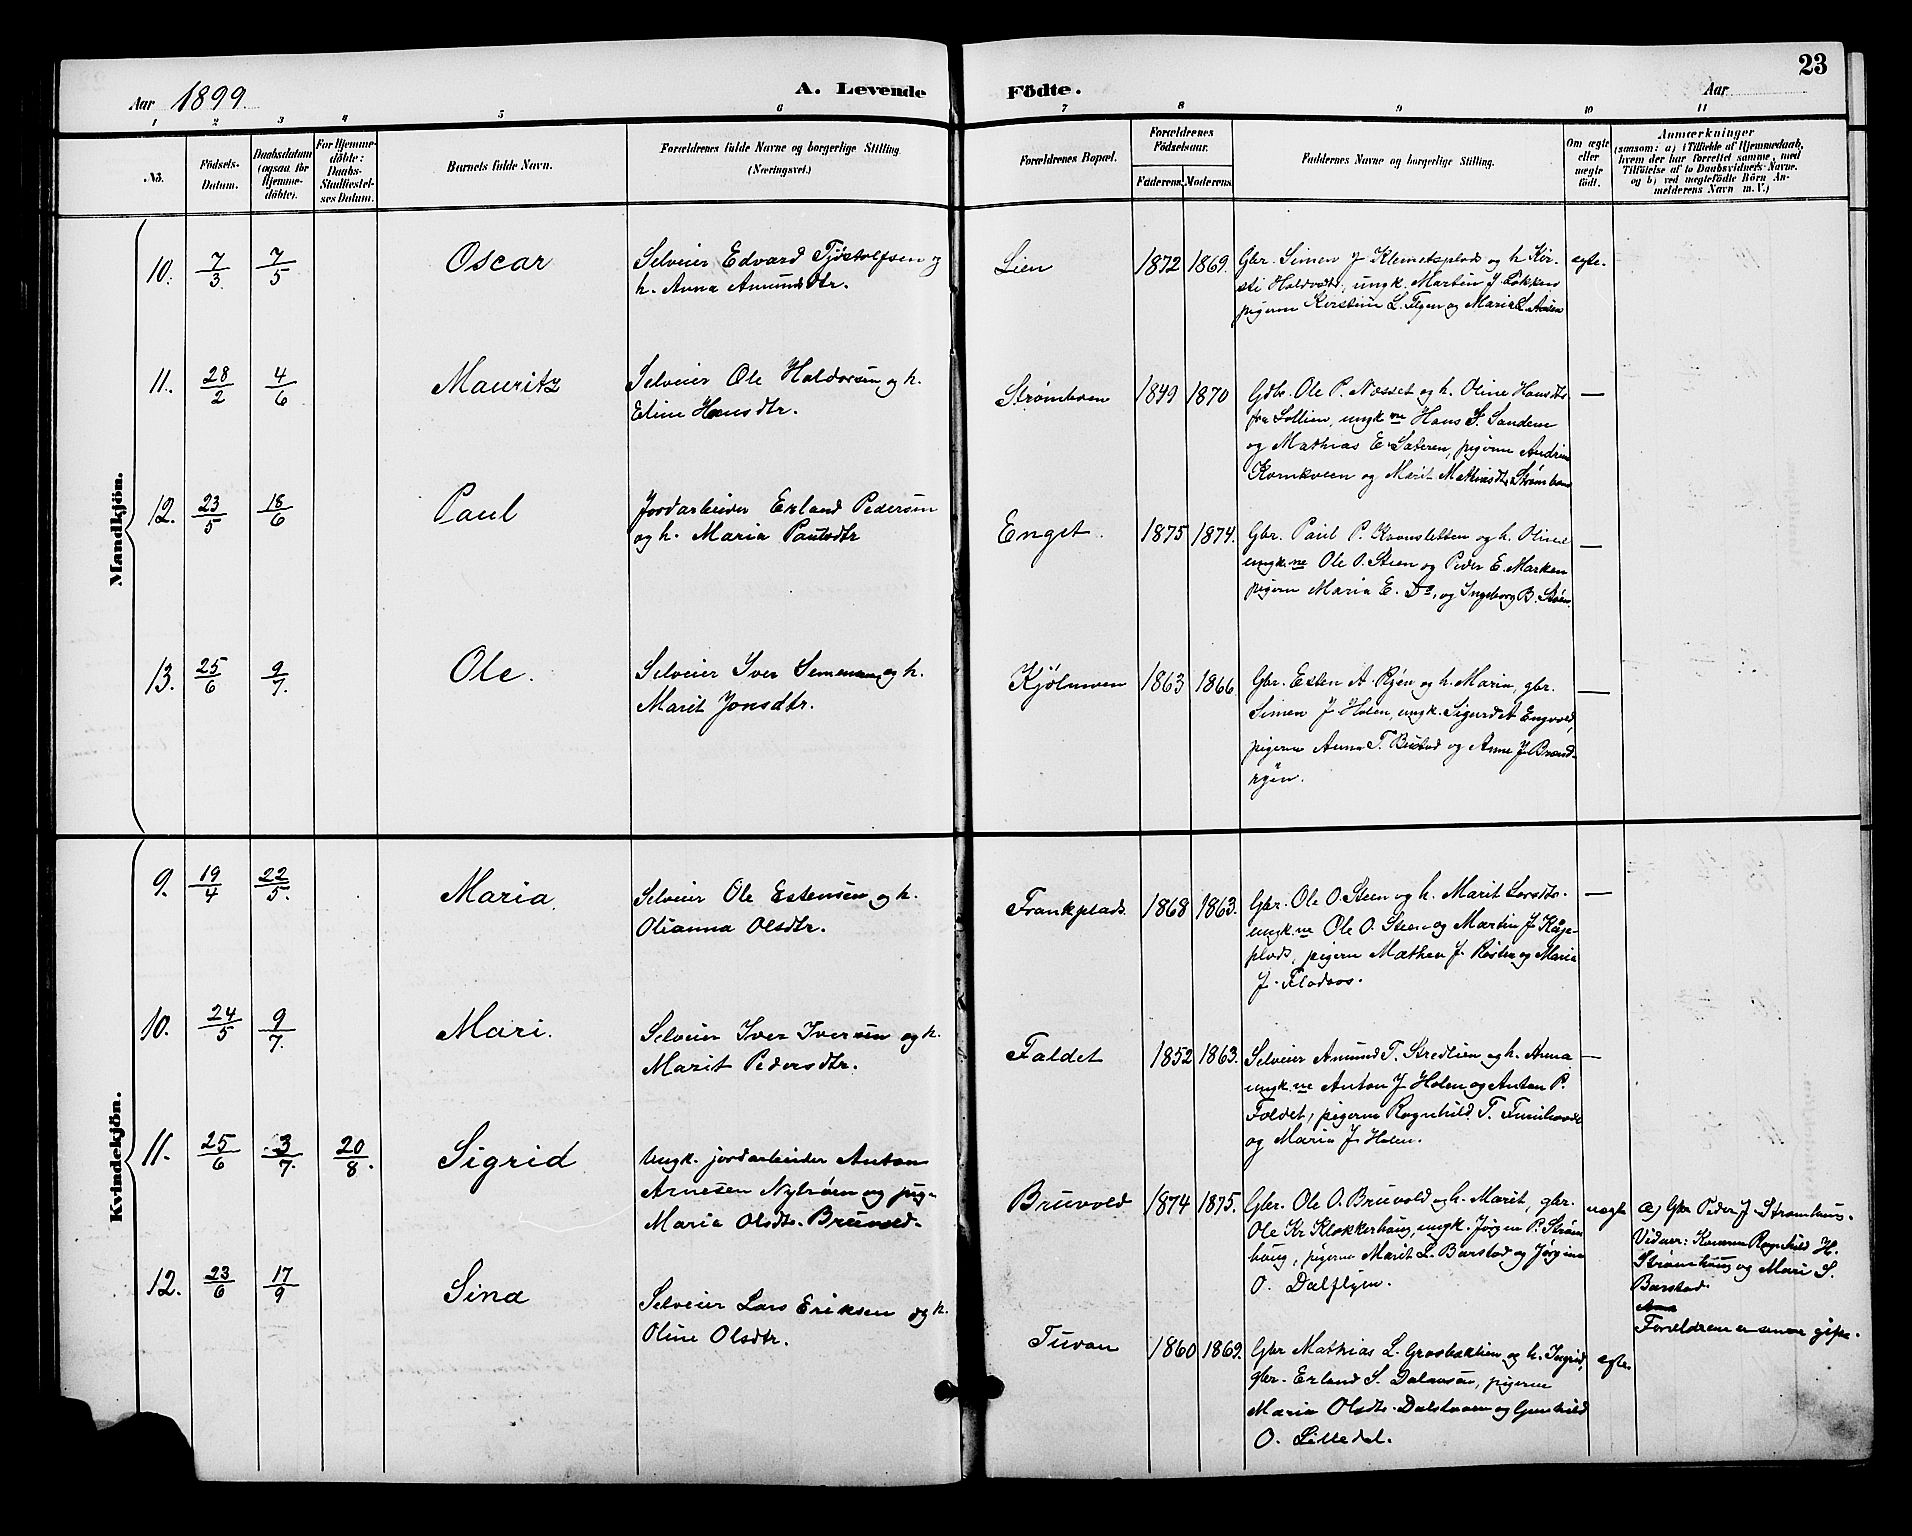 23
Aar 1899.
A. Levende Födte.
Aar
1 2 3 4 5 6 7 8 9 10 11
No.
Födsels-
Datum.
Daabsdatum
(ogsaa for
Hjemme-
döbte).
For Hjemme-
döbte:
Daabs-
Stadfæstel-
ses Datum.
Barnets fulde Navn.
Forældrenes fulde Navne og borgerlige Stilling
(Næringsvei.)
Forældrenes Bopæl.
Forældrenes
Födselsaar.
Faderens. Moderens.
Faddernes Navne og borgerlige Stilling.
Om ægte
eller
uægte
födt.
Anmærkninger
(saasom: a) i Tilfælde af Hjemmedaab,
hvem der har forrettet samme, med
Tilföielse af to Daabsvidners Navne.
og b) ved uægtefödte Börn An-
melderens Navn m. V.)
Mandkjön.
10. 7/3 7/5 Oscar
Selveier Edvard Tjöstolfsen og
h. Anna Amundsdtr.
Lien 1872 1869.
Gbr. Simen J Klemetsplads og h. Kir-
sti Haldvdtr, ungk. Martin J Løkken
pigerne Kerstine L. Flyen og Maria L. Aasen
ægte.
11. 28/2 4/6 Mauritz
Selveier Ole Haldorsen og h.
Eline Hansdtr.
Strømhoen 1849 1870
Gdbr. Ole P. Næsset og h. Oline Hansdtr
fra Sollien, ungk ne Hans S. Sanden
og Mathias E. Sæteren, pigerne Andrine
Kornkveen og Marit Mathiasdtr Strømhoen
—
12. 23/5 18/6 Paul
Jordarbeider Erland Pedersen
og h. Maria Paulsdtr
Enget. 1875 1874.
Gbr. Paul P. Ravnsletten og h. Oline
ungk. ne Ole O. Steen og Peder E. Marken
pigerne Maria E. Do, og Ingeborg B. Støen.
—
13. 25/6 9/7. Ole.
Selveier Iver Simensen og h.
Marit Jonsdtr.
Kjölmoen 1863 1866
Gbr. Esten A Röen og h. Maria, gbr.
Simen J Holen, ungk. Sigurd A Engvold,
pigerne Anne T. Bustad og Anne J Brænd-
röen.
—
Kvindekjön.
9. 19/4 22/5. Maria
Selveier Ole Estensen og h.
Olianna Olsdtr.
Frankplads. 1868 1863.
Gbr. Ole O. Steen og h. Marit Larsdtr.
ungk. ne Ole O. Steen og Martin J Klüge-
plads, pigerne Mathea J. Røsten og Maria
J. Flodaas.
—
10. 24/5 9/7. Mari.
Selveier Iver Iversen og h.
Marit Pedersdtr.
Faldet 1852 1863.
Selveier Amund T. Stredlien og h. Anna
ungk. ne Anton J Holen og Anton P.
Foldet, pigerne Ragnhild T.
og Maria J Holen.
—
11. 25/6 3/7. 20/8. Sigrid
Ungk. jordarbeider Anton
Arnesen Nytrøen og pig.
Maria Olsdtr. Bruvold.
Bruvold 1874 1875.
Gbr. Ole O. Bruvold og h. Marit, gbr.
Ole Kr Klokkerhaug, ungk. Jørgen P. Strøm-
haug, pigerne Marit L. Barstad og Jørgine
O. Dalflyen.
uægte
a) Gbr Peder J. Strømhaug.
Vidner: Konerne Ragnhild H.
Strømhaug og Mari S.
Barstad
Forældrene er senere gifte.
12. 23/6 17/9 Sina
Selveier Lars Eriksen og h.
Oline Olsdtr.
Tuvan 1860 1869.
Gbr Mathias L. Grasbaklien og h. Ingrid,
gbr. Erland S. Dalmoen, pigerne
Maria Olsdtr. Dalstuen og Gunhild
O. Lilledal.
ægte.